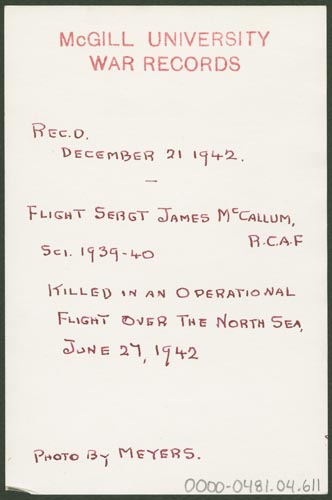 McGILL UNIVERSITY
WAR RECORDS
REC.D.
DECEMBER 21 1942.
—
FLIGHT SERGT JAMES McCALLUM,
R.C.A.F
SCI. 1939-40
KILLED IN AN OPERATIONAL
FLIGHT OVER THE NORTH SEA,
JUNE 27, 1942
PHOTO BY MEYERS.
0000-0481.04.611